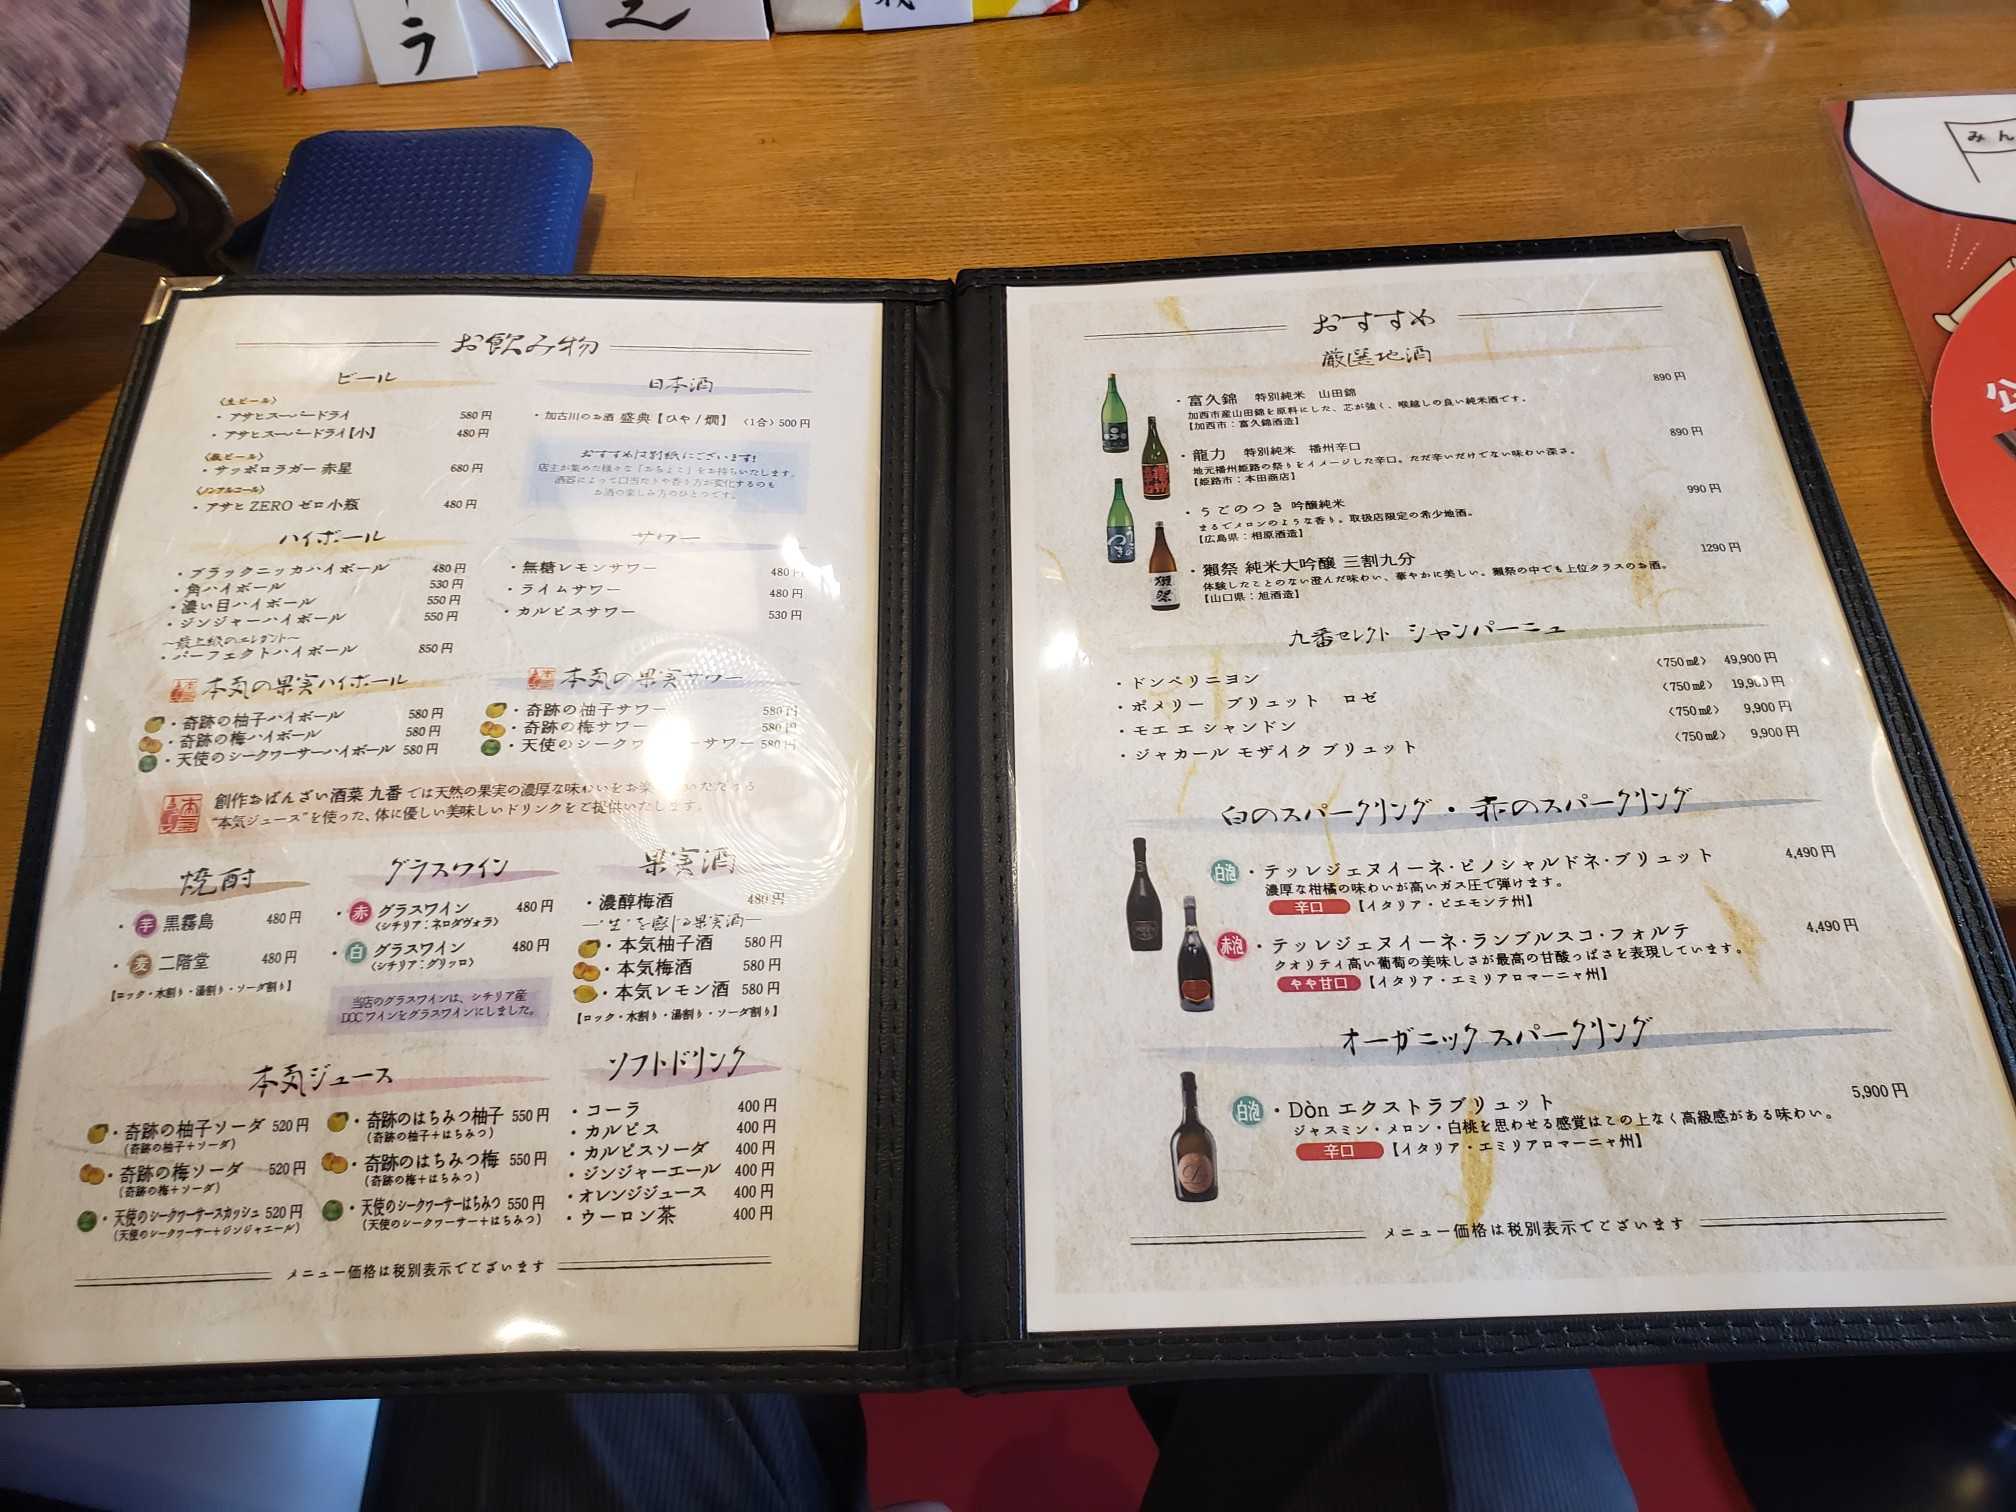 ラ
みん
お飲み物
ビール
〈生ビール〉
・アサヒスーパードライ 580円
・アサヒスーパードライ【小】 480円
〈瓶ビール〉
・サッポロラガー 赤星 680円
〈ノンアルコール〉
・アサヒ ZERO ゼロ小瓶 480円
日本酒
・加古川のお酒 盛典【ひや/燗】 〈1合〉500円
おすすめは別紙にございます!
店主が集めた様々な「おちょこ」をお持ちいたします。
酒器によって口当たりや香り方が変化するのも
お酒の楽しみ方のひとつです。
ハイボール
・ブラックニッカハイボール 480円
・角ハイボール 530円
・濃い目ハイボール 550円
・ジンジャーハイボール 550円
〜最上級のエレガント〜
・パーフェクトハイボール 850円
サワー
・無糖レモンサワー 480円
・ライムサワー 480円
・カルピスサワー 530円
本気の果実ハイボール
・奇跡の柚子ハイボール 580円
・奇跡の梅ハイボール 580円
・天使のシークワーサーハイボール 580円
本気の果実サワー
・奇跡の柚子サワー 580円
・奇跡の梅サワー 580円
・天使のシークワーサーサワー 580円
創作おばんざい酒菜 九番 では天然の果実の濃厚な味わいをお楽しみいただける
"本気ジュース"を使った、体に優しい美味しいドリンクをご提供いたします。
焼酎
・芋 黒霧島 480円
・麦 二階堂 480円
【ロック・水割り・湯割り・ソーダ割り】
グラスワイン
・赤 グラスワイン 480円
〈シチリア:ネロダヴォラ〉
・白 グラスワイン 480円
〈シチリア:グリッロ〉
当店のグラスワインは、シチリア産
DOCワインをグラスワインにしました。
果実酒
・濃醇梅酒 480円
―"生"を感じる果実酒―
・本気柚子酒 580円
・本気梅酒 580円
・本気レモン酒 580円
【ロック・水割り・湯割り・ソーダ割り】
本気ジュース
・奇跡の柚子ソーダ 520円
(奇跡の柚子+ソーダ)
・奇跡の梅ソーダ 520円
(奇跡の梅+ソーダ)
・天使のシークヮーサースカッシュ 520円
(天使のシークワーサー+ジンジャエール)
・奇跡のはちみつ柚子 550円
(奇跡の柚子+はちみつ)
・奇跡のはちみつ梅 550円
(奇跡の梅+はちみつ)
・天使のシークヮーサーはちみつ 550円
(天使のシークワーサー+はちみつ)
ソフトドリンク
・コーラ 400円
・カルピス 400円
・カルピスソーダ 400円
・ジンジャーエール 400円
・オレンジジュース 400円
・ウーロン茶 400円
メニュー価格は税別表示でございます
おすすめ
厳選地酒
・富久錦 特別純米 山田錦 890円
加西市産山田錦を原料にした、芯が強く、喉越しの良い純米酒です。
【加西市:富久錦酒造】
・龍力 特別純米 播州辛口 890円
地元播州姫路の祭りをイメージした辛口。ただ辛いだけでない味わい深さ。
【姫路市:本田商店】
・うごのつき 吟醸純米 990円
まるでメロンのような香り。取扱店限定の希少地酒。
【広島県:相原酒造】
・獺祭 純米大吟醸 三割九分 1290円
体験したことのない澄んだ味わい、華やかに美しい。獺祭の中でも上位クラスのお酒。
【山口県:旭酒造】
九番セレクト シャンパーニュ
・ドンペリニヨン 〈750㎖〉 49,900円
・ポメリー ブリュット ロゼ 〈750㎖〉 19,900円
・モエ エ シャンドン 〈750㎖〉 9,900円
・ジャカール モザイク ブリュット 〈750㎖〉 9,900円
白のスパークリング・赤のスパークリング
白泡 ・テッレジェヌイーネ・ピノシャルドネ・ブリュット 4,490円
濃厚な柑橘の味わいが高いガス圧で弾けます。
辛口 【イタリア・ピエモンテ州】
赤泡 ・テッレジェヌイーネ・ランブルスコ・フォルテ 4,490円
クオリティ高い葡萄の美味しさが最高の甘酸っぱさを表現しています。
やや甘口 【イタリア・エミリアロマーニャ州】
オーガニック スパークリング
白泡 ・Dòn エクストラブリュット 5,900円
ジャスミン・メロン・白桃を思わせる感覚はこの上なく高級感がある味わい。
辛口 【イタリア・エミリアロマーニャ州】
メニュー価格は税別表示でございます